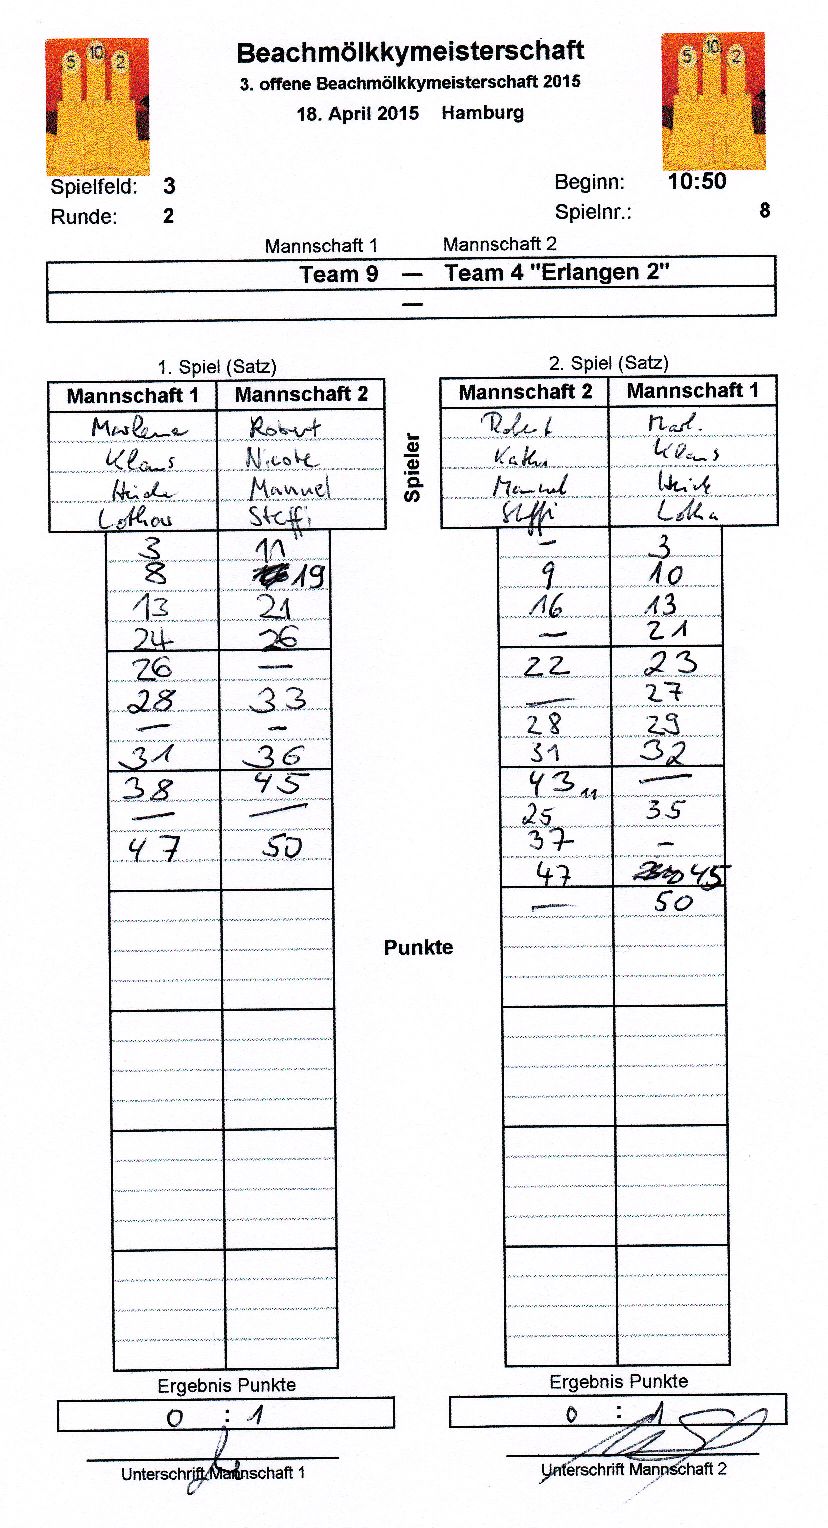 5 10 2
5 10 2
Beachmölkkymeisterschaft
3. offene Beachmölkkymeisterschaft 2015
18. April 2015 Hamburg
Spielfeld: 3
Beginn: 10:50
Runde: 2
Spielnr.: 8
Mannschaft 1 Mannschaft 2
Team 9 — Team 4 "Erlangen 2"
—
1. Spiel (Satz)
2. Spiel (Satz)
Mannschaft 1 Mannschaft 2
Mannschaft 2 Mannschaft 1
Spieler
Marlene Robert
Robert Marl.
Klaus Nicole
Klaus
Manuel
Manuel
Lothar Steffi
Steffi
3 11
– 3
8 19
9 10
13 21
16 13
24 26
– 21
26 –
22 23
28 33
– 27
– –
28 29
31 36
31 32
38 45
43 11 –
– –
25 35
47 50
37 –
47 45
– 50
Punkte
Ergebnis Punkte
Ergebnis Punkte
0 : 1
0 : 1
Unterschrift Mannschaft 1
Unterschrift Mannschaft 2